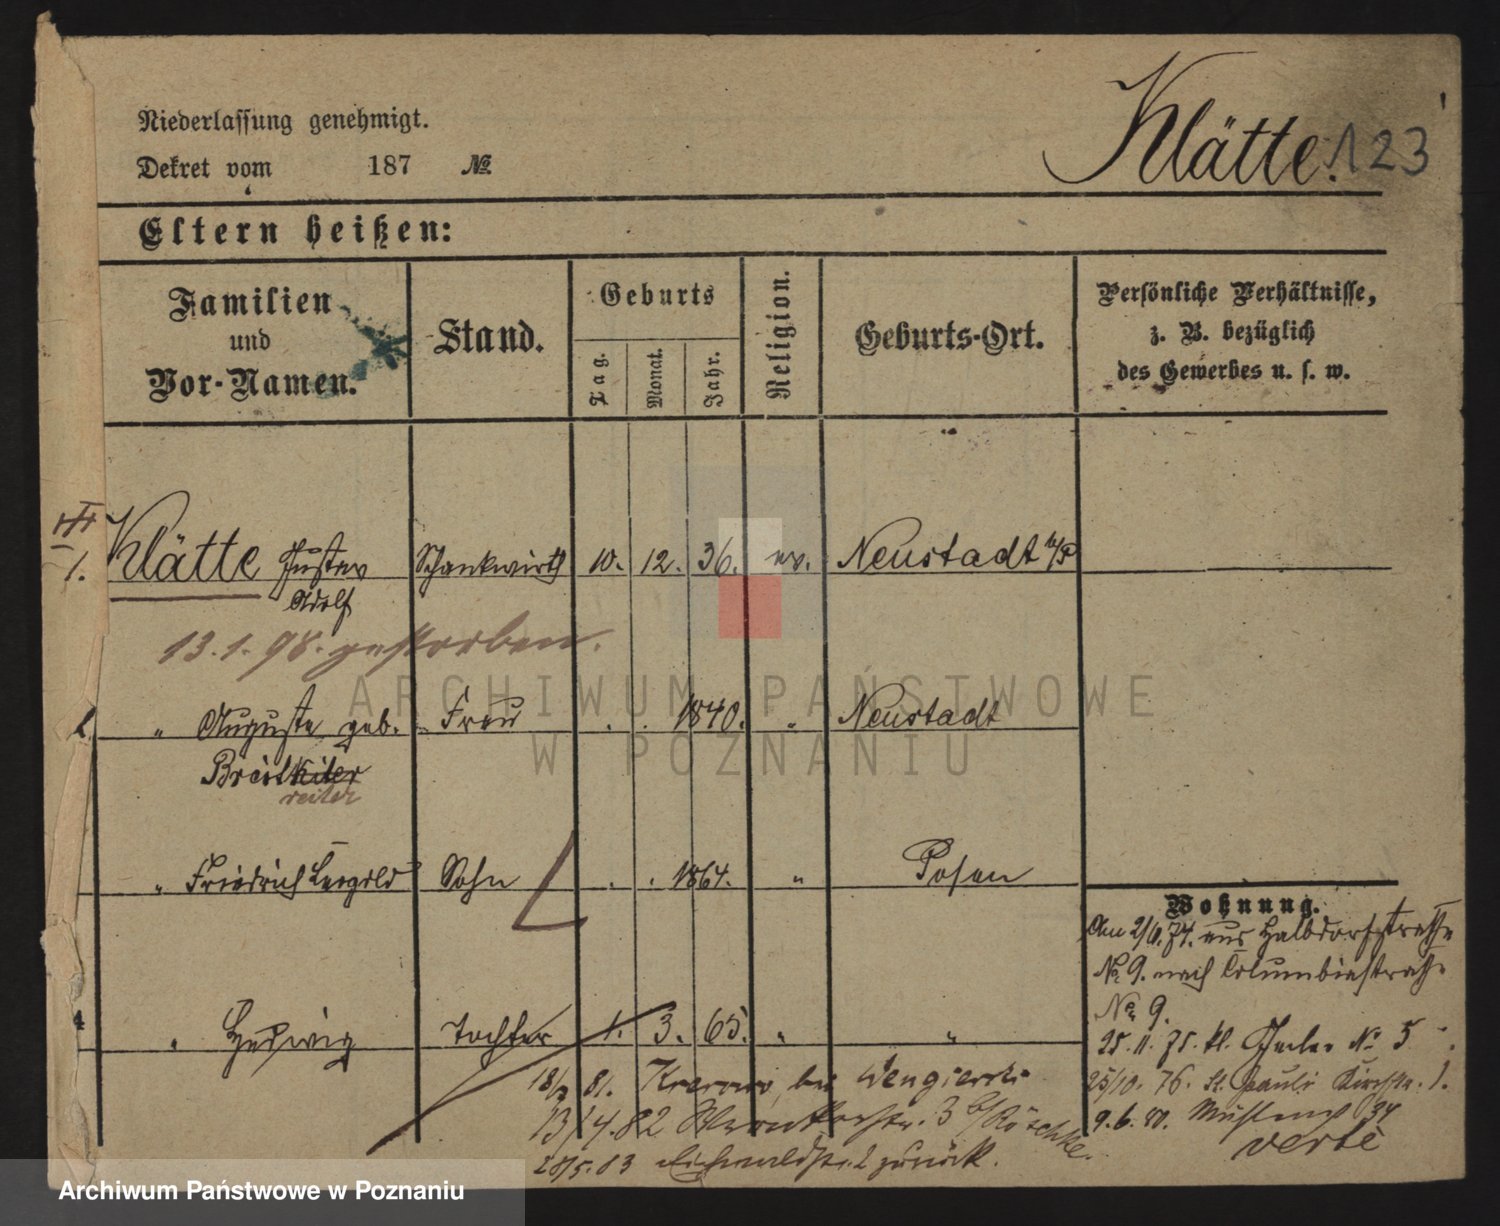 Niederlassung genehmigt.
Dekret vom 187 №
Klätte. 123
Eltern heißen:
Familien und Vor-Namen.
Stand.
Geburts
Tag.
Monat.
Jahr.
Religion.
Geburts-Ort.
Persönliche Verhältnisse,
z. B. bezüglich
des Gewerbes u. s. w.
1. Klätte Gustav Schankwirth 10. 12. 36. ev. Neustadt a/P
Adolf
13. 1. 98. gestorben.
" Auguste geb. Frau . . 1840. " Neustadt
Breitkiter
reiter
" Friedrich Leopold Sohn . . 1864. " Posen
4 " Hedwig Tochter 1. 3. 65. " "
Wohnung.
Am 2/6. 74. aus Halbdorfstrasse
No 9. nach Columbiastrasse
No 9.
25. 11. 75. kl. No 5
25/10. 76. St. Pauli Kirchstr. 1.
9. 6. 80. 34
verte
18/ 81. bei Wengierski
13/4. 82 3 b/ Röschke.
28/5. 83 Eichwaldstr. 2 zurück.
ARCHIWUM PAŃSTWOWE
W POZNANIU
Archiwum Państwowe w Poznaniu